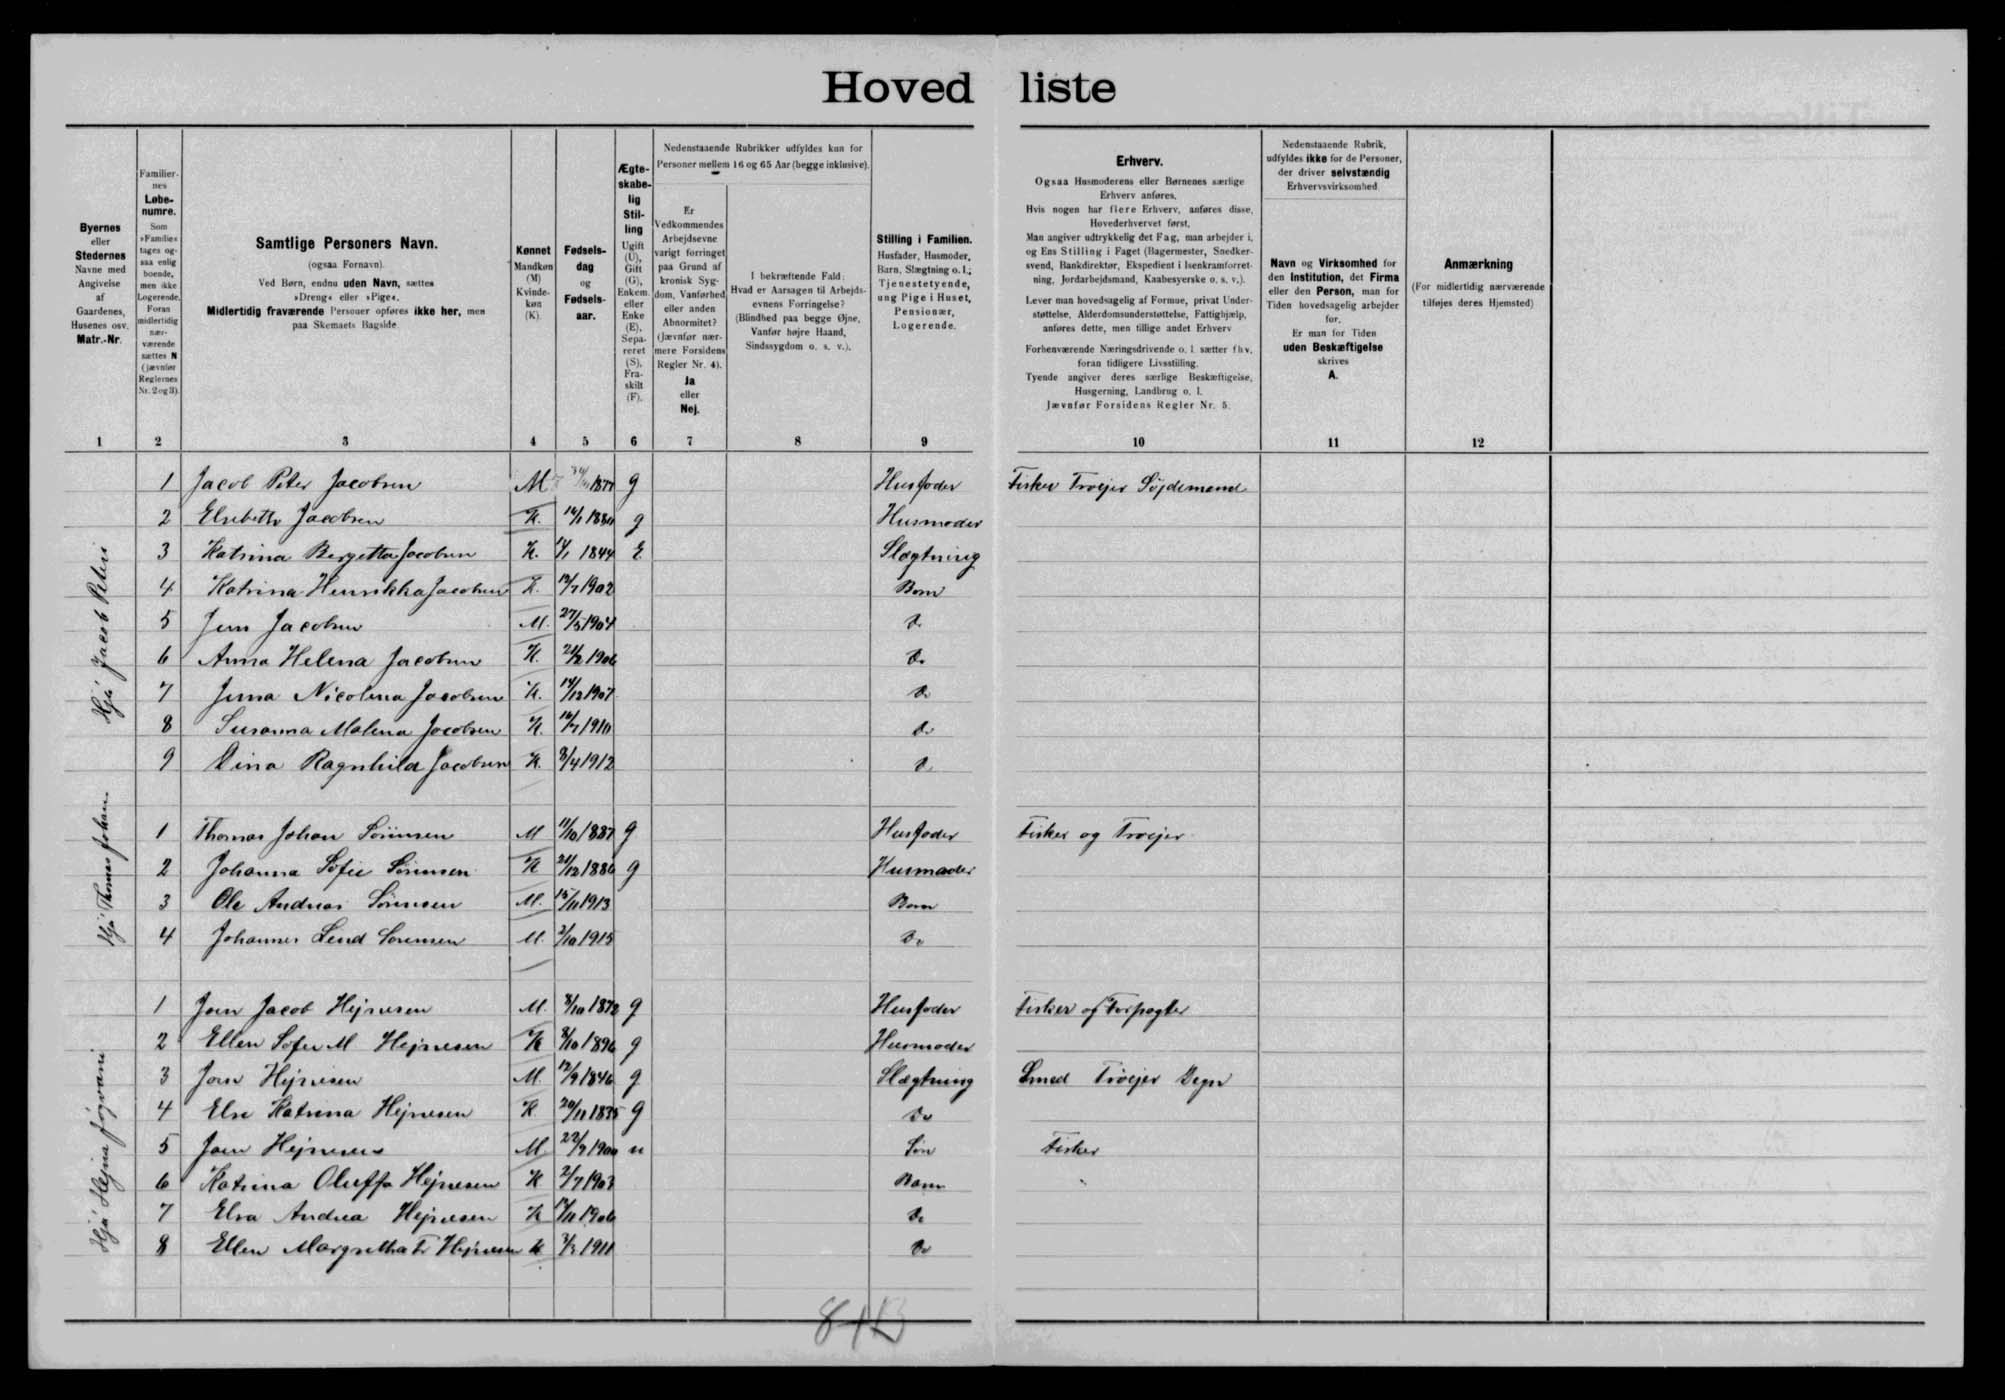 Hovedliste
Byernes
eller
Stedernes
Navne med
Angivelse
af
Gaardenes,
Husenes osv.
Matr.-Nr.
Familier-
nes
Løbe-
numre.
Som
»Familie«
tages og-
saa enlig
boende,
men ikke
Logerende.
Foran
midlertidig
nær-
værende
sættes N
(jævnfør
Reglernes
Nr. 2 og 3).
Samtlige Personers Navn.
(ogsaa Fornavn).
Ved Børn, endnu uden Navn, sættes
»Dreng« eller »Pige«.
Midlertidig fraværende Personer opføres ikke her, men
paa Skemaets Bagside.
Kønnet
Mandkøn
(M)
Kvinde-
køn
(K).
Fødsels-
dag
og
Fødsels-
aar.
Ægte-
skabe-
lig
Stil-
ling
Ugift
(U),
Gift
(G),
Enkem.
eller
Enke
(E),
Sepa-
reret
(S),
Fra-
skilt
(F).
Nedenstaaende Rubrikker udfyldes kun for
Personer mellem 16 og 65 Aar (begge inklusive).
Er
Vedkommendes
Arbejdsevne
varigt forringet
paa Grund af
kronisk Syg-
dom, Vanførhed
eller anden
Abnormitet?
(Jævnfør nær-
mere Forsidens
Regler Nr. 4).
Ja
eller
Nej.
I bekræftende Fald:
Hvad er Aarsagen til Arbejds-
evnens Forringelse?
(Blindhed paa begge Øjne,
Vanfør højre Haand,
Sindssygdom o. s. v.).
Stilling i Familien.
Husfader, Husmoder,
Barn, Slægtning o. l.;
Tjenestetyende,
ung Pige i Huset,
Pensionær,
Logerende.
Erhverv.
Ogsaa Husmoderens eller Børnenes særlige
Erhverv anføres.
Hvis nogen har flere Erhverv, anføres disse,
Hovederhvervet først.
Man angiver udtrykkelig det Fag, man arbejder i,
og Ens Stilling i Faget (Bagermester, Snedker-
svend, Bankdirektør, Ekspedient i Isenkramforret-
ning, Jordarbejdsmand, Kaabesyerske o. s. v.).
Lever man hovedsagelig af Formue, privat Under-
støttelse, Alderdomsunderstøttelse, Fattighjælp,
anføres dette, men tillige andet Erhverv
Forhenværende Næringsdrivende o. l. sætter fhv.
foran tidligere Livsstilling.
Tyende angiver deres særlige Beskæftigelse,
Husgerning, Landbrug o. l.
Jævnfør Forsidens Regler Nr. 5.
Nedenstaaende Rubrik,
udfyldes ikke for de Personer,
der driver selvstændig
Erhvervsvirksomhed
Navn og Virksomhed for
den Institution, det Firma
eller den Person, man for
Tiden hovedsagelig arbejder
for.
Er man for Tiden
uden Beskæftigelse
skrives
A.
Anmærkning
(For midlertidig nærværende
tilføjes deres Hjemsted)
1 2 3 4 5 6 7 8 9 10 11 12
Hjá Jacob Peteri
1 Jacob Peter Jacobsen M 1877 g Husfader Fisker Trøjer Søjdemand
2 Elsebeth Jacobsen K. g Husmoder
3 Katrina Bergetta Jacobsen K. 14/1 1844 E Slægtning
4 Katrina Henrikka Jacobsen K. 12/7 1902 Barn
5 Jens Jacobsen M. 27/5 1904 Do
6 Anna Helena Jacobsen K. 21/2 1906 Do
7 Jensa Nicolina Jacobsen K. 14/12 1907 Do
8 Susanna Malena Jacobsen K. 1910 Do
9 Dina Ragnhild Jacobsen K. 8/4 1912 Do
Hjá Thomas Johan.
1 Thomas Johan Sørensen M 11/10 1887 g Husfader Fisker og Trøjer
2 Johanna Sofie Sørensen K 21/12 1886 g Husmoder
3 Ole Andreas Sørensen M. 15/11 1913 Barn
4 Johannes Lend Sørensen M. 2/10 1915 Do
Hjá Hejna Jógvani
1 Joen Jacob Hejnesen M. 8/10 1872 g Husfader Fisker og Forpagter
2 Ellen Sofie M Hejnesen K g Husmoder
3 Joen Hejnesen M. 12/9 1846 g Slægtning Smed Trøjer Degn
4 Else Katrina Hejnesen K. 20/11 1835 g Do
5 Joen Hejnesen M. 22/9 1900 u Søn Fisker
6 Katrina Oluffa Hejnesen K 2/7 1903 Barn
7 Elsa Andrea Hejnesen K 1906 Do
8 Ellen Margretha Fr Hejnesen K 1911 Do